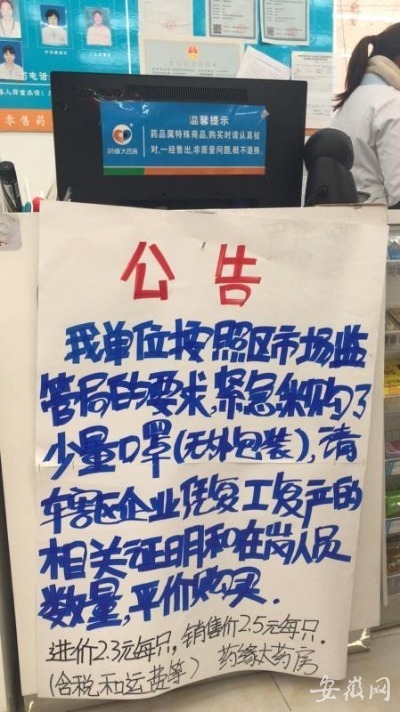 零售药
药缘大药房
温馨提示
药品属特殊商品,购买时请认真核
对,一经售出,非质量问题,概不退换。
公告
我单位按照区市场监
管局的要求,紧急采购了
少量口罩(无外包装),请
本辖区企业凭复工复产的
相关证明和在岗人员
数量,平价购买.
进价2.3元每只,销售价2.5元每只.
(含税和运费等) 药缘大药房
安徽网